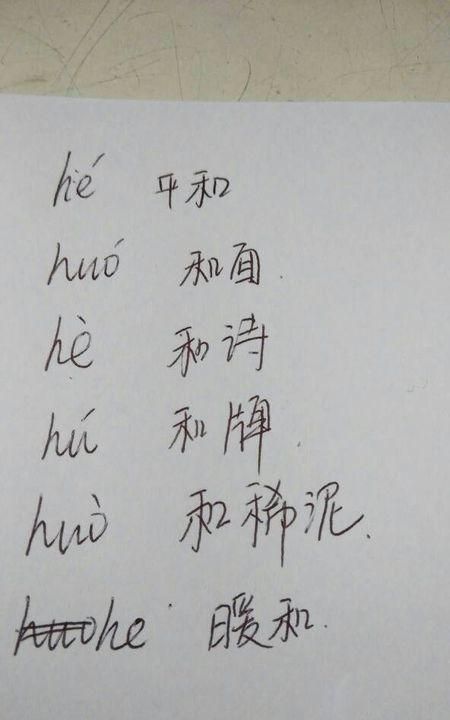 hé 平和
huó 和面.
hè 和诗
hú 和牌
huò 和稀泥.
he 暖和.